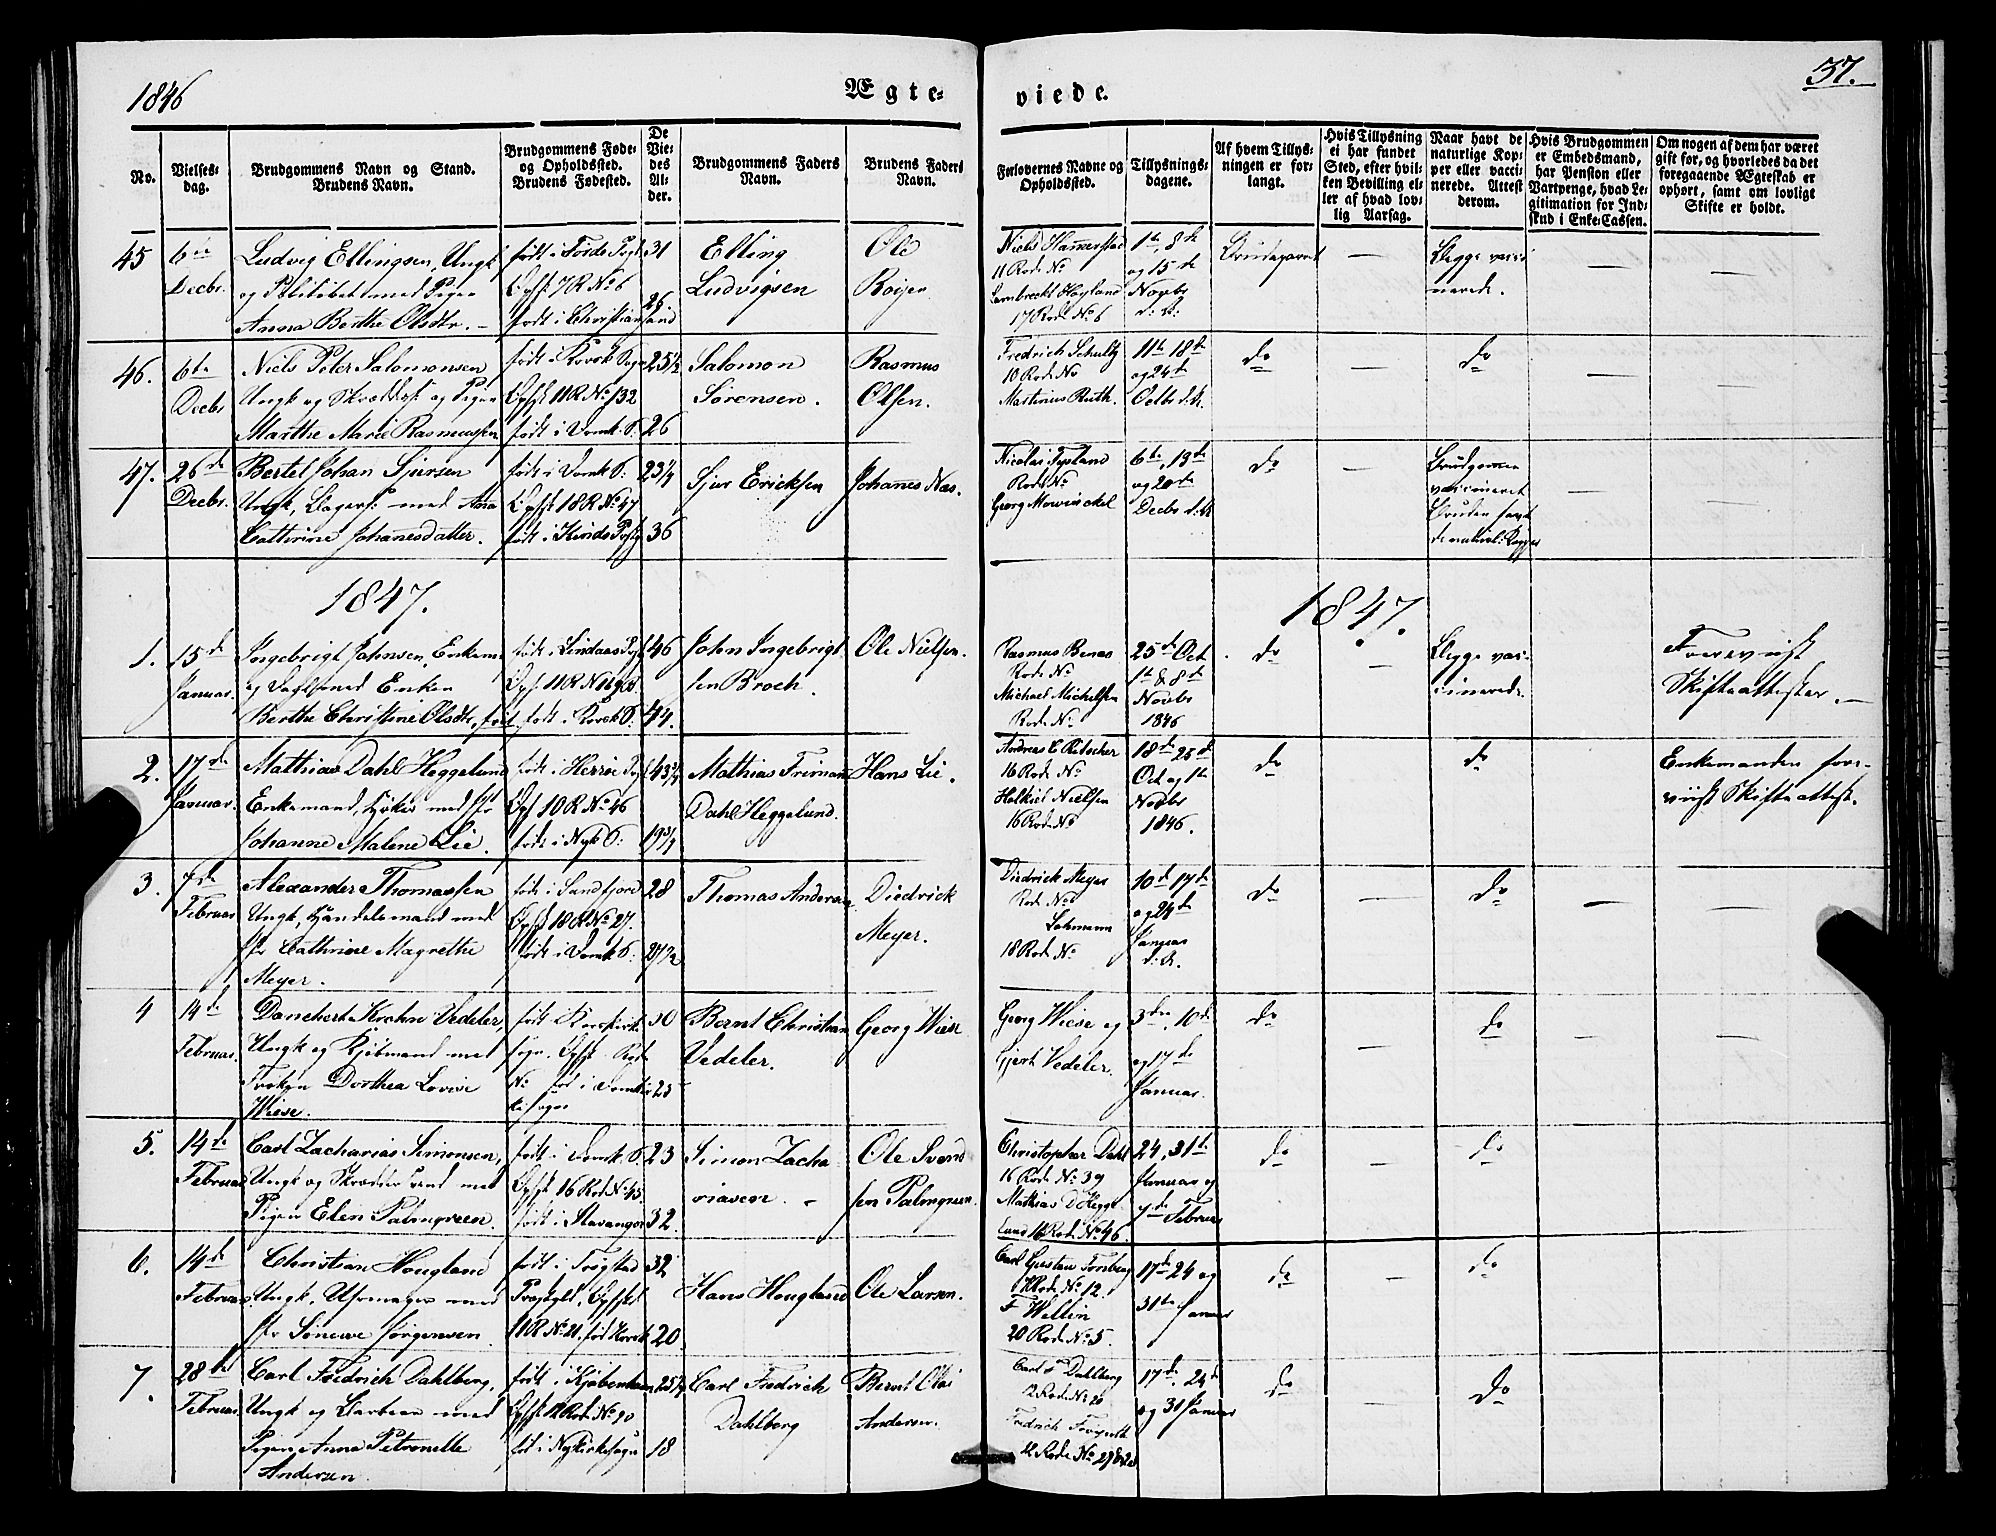 1846
Ægte-
viede.
37.
No.
Vielses-
dag.
Brudgommens Navn og Stand.
Brudens Navn.
Brudgommens Føde-
og Opholdssted.
Brudens Fødested.
De
Vie-
des
Al-
der.
Brudgommens Faders
Navn.
Brudens Faders
Navn.
Forlovernes Navne og
Opholdssted.
Tillysnings-
dagene.
Af hvem Tillys-
ningen er for-
langt.
Hvis Tillysning
ei har fundet
Sted, efter hvil-
ken Bevilling el-
ler af hvad lov-
lig Aarsag.
Naar havt de
naturlige Kop-
per eller vacci-
nerede. Attest
derom.
Hvis Brudgommen
er Embedsmand,
har Pension eller
Vartpenge, hvad Le-
gitimation for Ind-
skud i Enke-Cassen.
Om nogen af dem har været
gift før, og hvorledes da det
foregaaende Ægteskab er
ophørt, samt om lovligt
Skifte er holdt.
45
6te
Decbr.
Ludvig Ellingsen, Ungk
og med Pigen
Anna Berthe Olsdtr.
født i Førde
Opst 7 R No 6
født i Christiansand
31
26
Elling
Ludvigsen
Ole
Roijen
Niels Hammerstad
11 Rode No
Lambrecht Høyland
17 Rode No 6
1te, 8de
og 15de
Novbr
d: A:
Brudeparret
Begge vacci
nerede.
46.
6te
Decbr
Niels Peter Salomonsen
Ungk og og Pigen
Marthe Marie Rasmussen
født i Korsk Sogn
Opst 11 R No 132
født i Domk. S.
25½
26
Salomon
Sørensen.
Rasmus
Olsen.
Fredrich Schultz
10 Rode No
Martinus Ruth.
11te 18de
og 24de
Octbr d: A.
do
do
47.
26de
Decbr.
Bertel Johan Sjursen
Ungk, med Ana
Cathrine Johanesdatter.
født i Domk S:
Opst 18 R No 47
født i Kinds
36
Sjur Ericksen
Johannes Næs.
Nicolai Tysland
Rode No
Georg Mowinckel
6te, 13de
og 20de
Decbr d: A
do
Brudgommen
vaccineret
Bruden havt
de naturl: Kopper
1847.
1847.
1.
15de
Januar.
Ingebrigt Johnsen, Enkem
og med Enken
Berthe Christine Olsdtr, født
født i Lindaas
Opst 11 R No
født i Korsk S.
46
44.
John Ingebrigt
sen Broch.
Ole Nielsen.
Rasmus
Rode No
Michael Michelsen
Rode No
25de Oct
1te & 8de
Novbr
1846
do
Begge vac-
cinerede.
Foreviist
Skifteattester.
2.
17de
Januar.
Mathias Dahl Heggelund
Enkemand, Høker med Jfr
Johanne Malene Lie.
født i Herrøe
Opst 10 R No 46
født i Nyk S:
Mathias Frimann
Dahl Heggelund.
Hans Lie.
Andreas C Ritscher
16 Rode No
Nielsen
16 Rode No
18de 25de
Oct og 1te
Novbr
1846.
do
do
Enkemanden fore-
viist Skifteattest.
3.
7de
Februar
Alexander Thomassen
Ungk, Handelsmand med
Jfr Cathrine Magrethe
Meyer.
født i Sandfjord
Opst 18 R No 27.
født i Domk S:
28
27½
Thomas Andersen
Diedrick
Meyer.
Diedrick Meyer
Rode No
Lohmann
18 Rode No
10de 17de
og 24de
Januar
d: A.
do
do
4
14de
Februar.
Danchert Krohn Vedeler,
Ungk og Kjøbmand med
Frøken Dorthea Lovise
Wiese.
født i Korskirke
sogn. Opst Rode
No født i Domkir
kesogn
30
25
Bernt Christian
Vedeler.
Georg Wiese
Georg Wiese og
Gjert Vedeler.
3die, 10de
og 17de
Januar.
do
do
5.
14de
Februar
Carl Zacharias Simonsen,
Ungk og Skrædder svend med
Pigen Elen Palmgreen.
født i Domk. S.
Opst 16 Rod No 45.
født i Stavanger
23
32.
Simon Zacha
riasen.
Ole Svend
sen Palmgreen.
Christopher Dahl
16 Rode No 39
Mathias D Hegge
lund 16 Rode No 46.
24, 31te
Januar og
7de Februar
do
do
6.
14de
Februar
Christian Hougland
Ungk, Uhrmager med
Jfr Søneve Jørgensen
født i Trøgstad
Præstgld, Opst
11 R No 21. fød Korsk
32
20
Hans Hougland
Ole Larsen.
Carl Gustav Forsberg
Rode No 12.
F Wellin
20 Rode No 5.
17de 24 og
31te Januar
do
do
7.
28de
Februar
Carl Fredrich Dahlberg,
Ungk og Barbeer med
Pigen Anna Petronelle
Andersen.
født i Kjøbenhavn
Opst 12 Rod. No 20
fød i Nykirkesogn
18
Carl Fredrich
Dahlberg
Bernt Olai
Andersen.
Carl F Dahlberg
12 Rode No 20
Fredrich
12 Rode No
17de, 24de
og 31 Januar
do
do